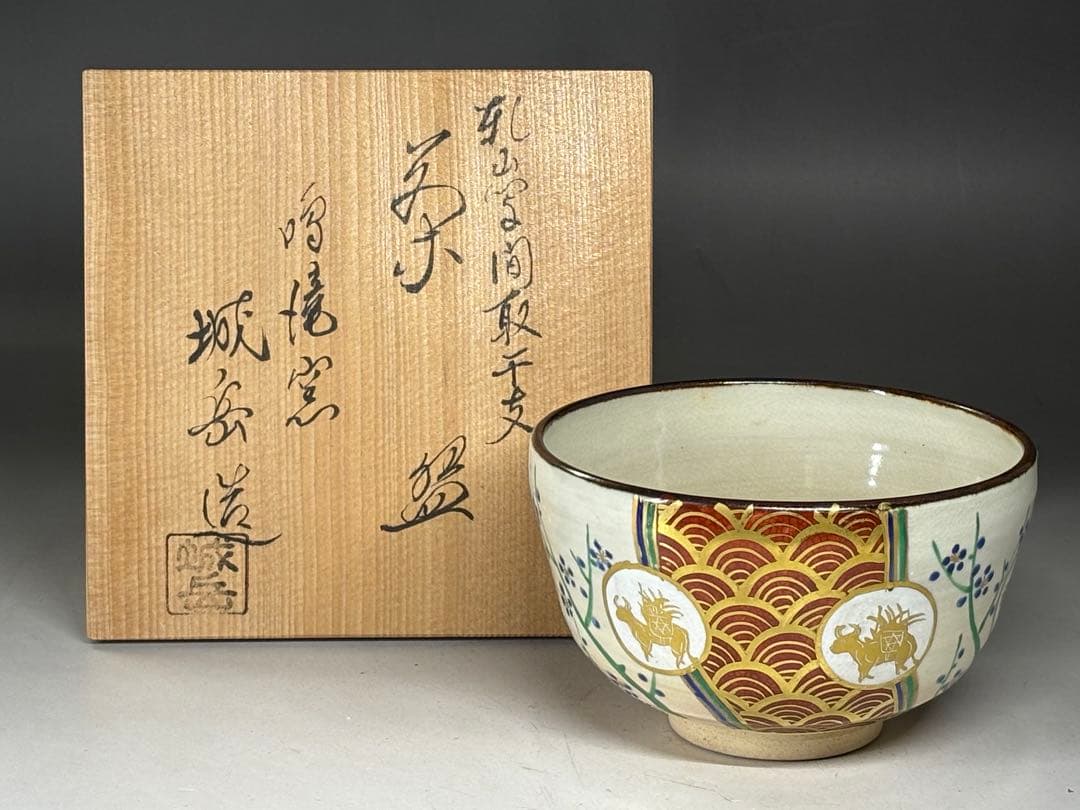 乾山写間取干支
茶盌
鳴滝窯
城岳造
城岳